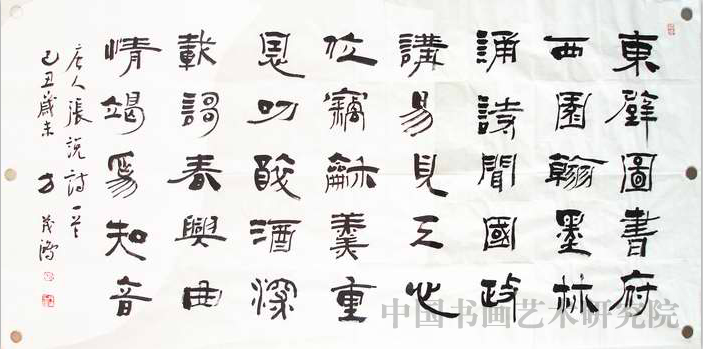 東壁圖書府
西園翰墨林
誦詩聞國政
講易見天心
位竊龢羹重
恩叨醉酒深
載謌春興曲
情竭爲知音
唐人張說詩一首
己丑歲末 方茂
中国书画艺术研究院